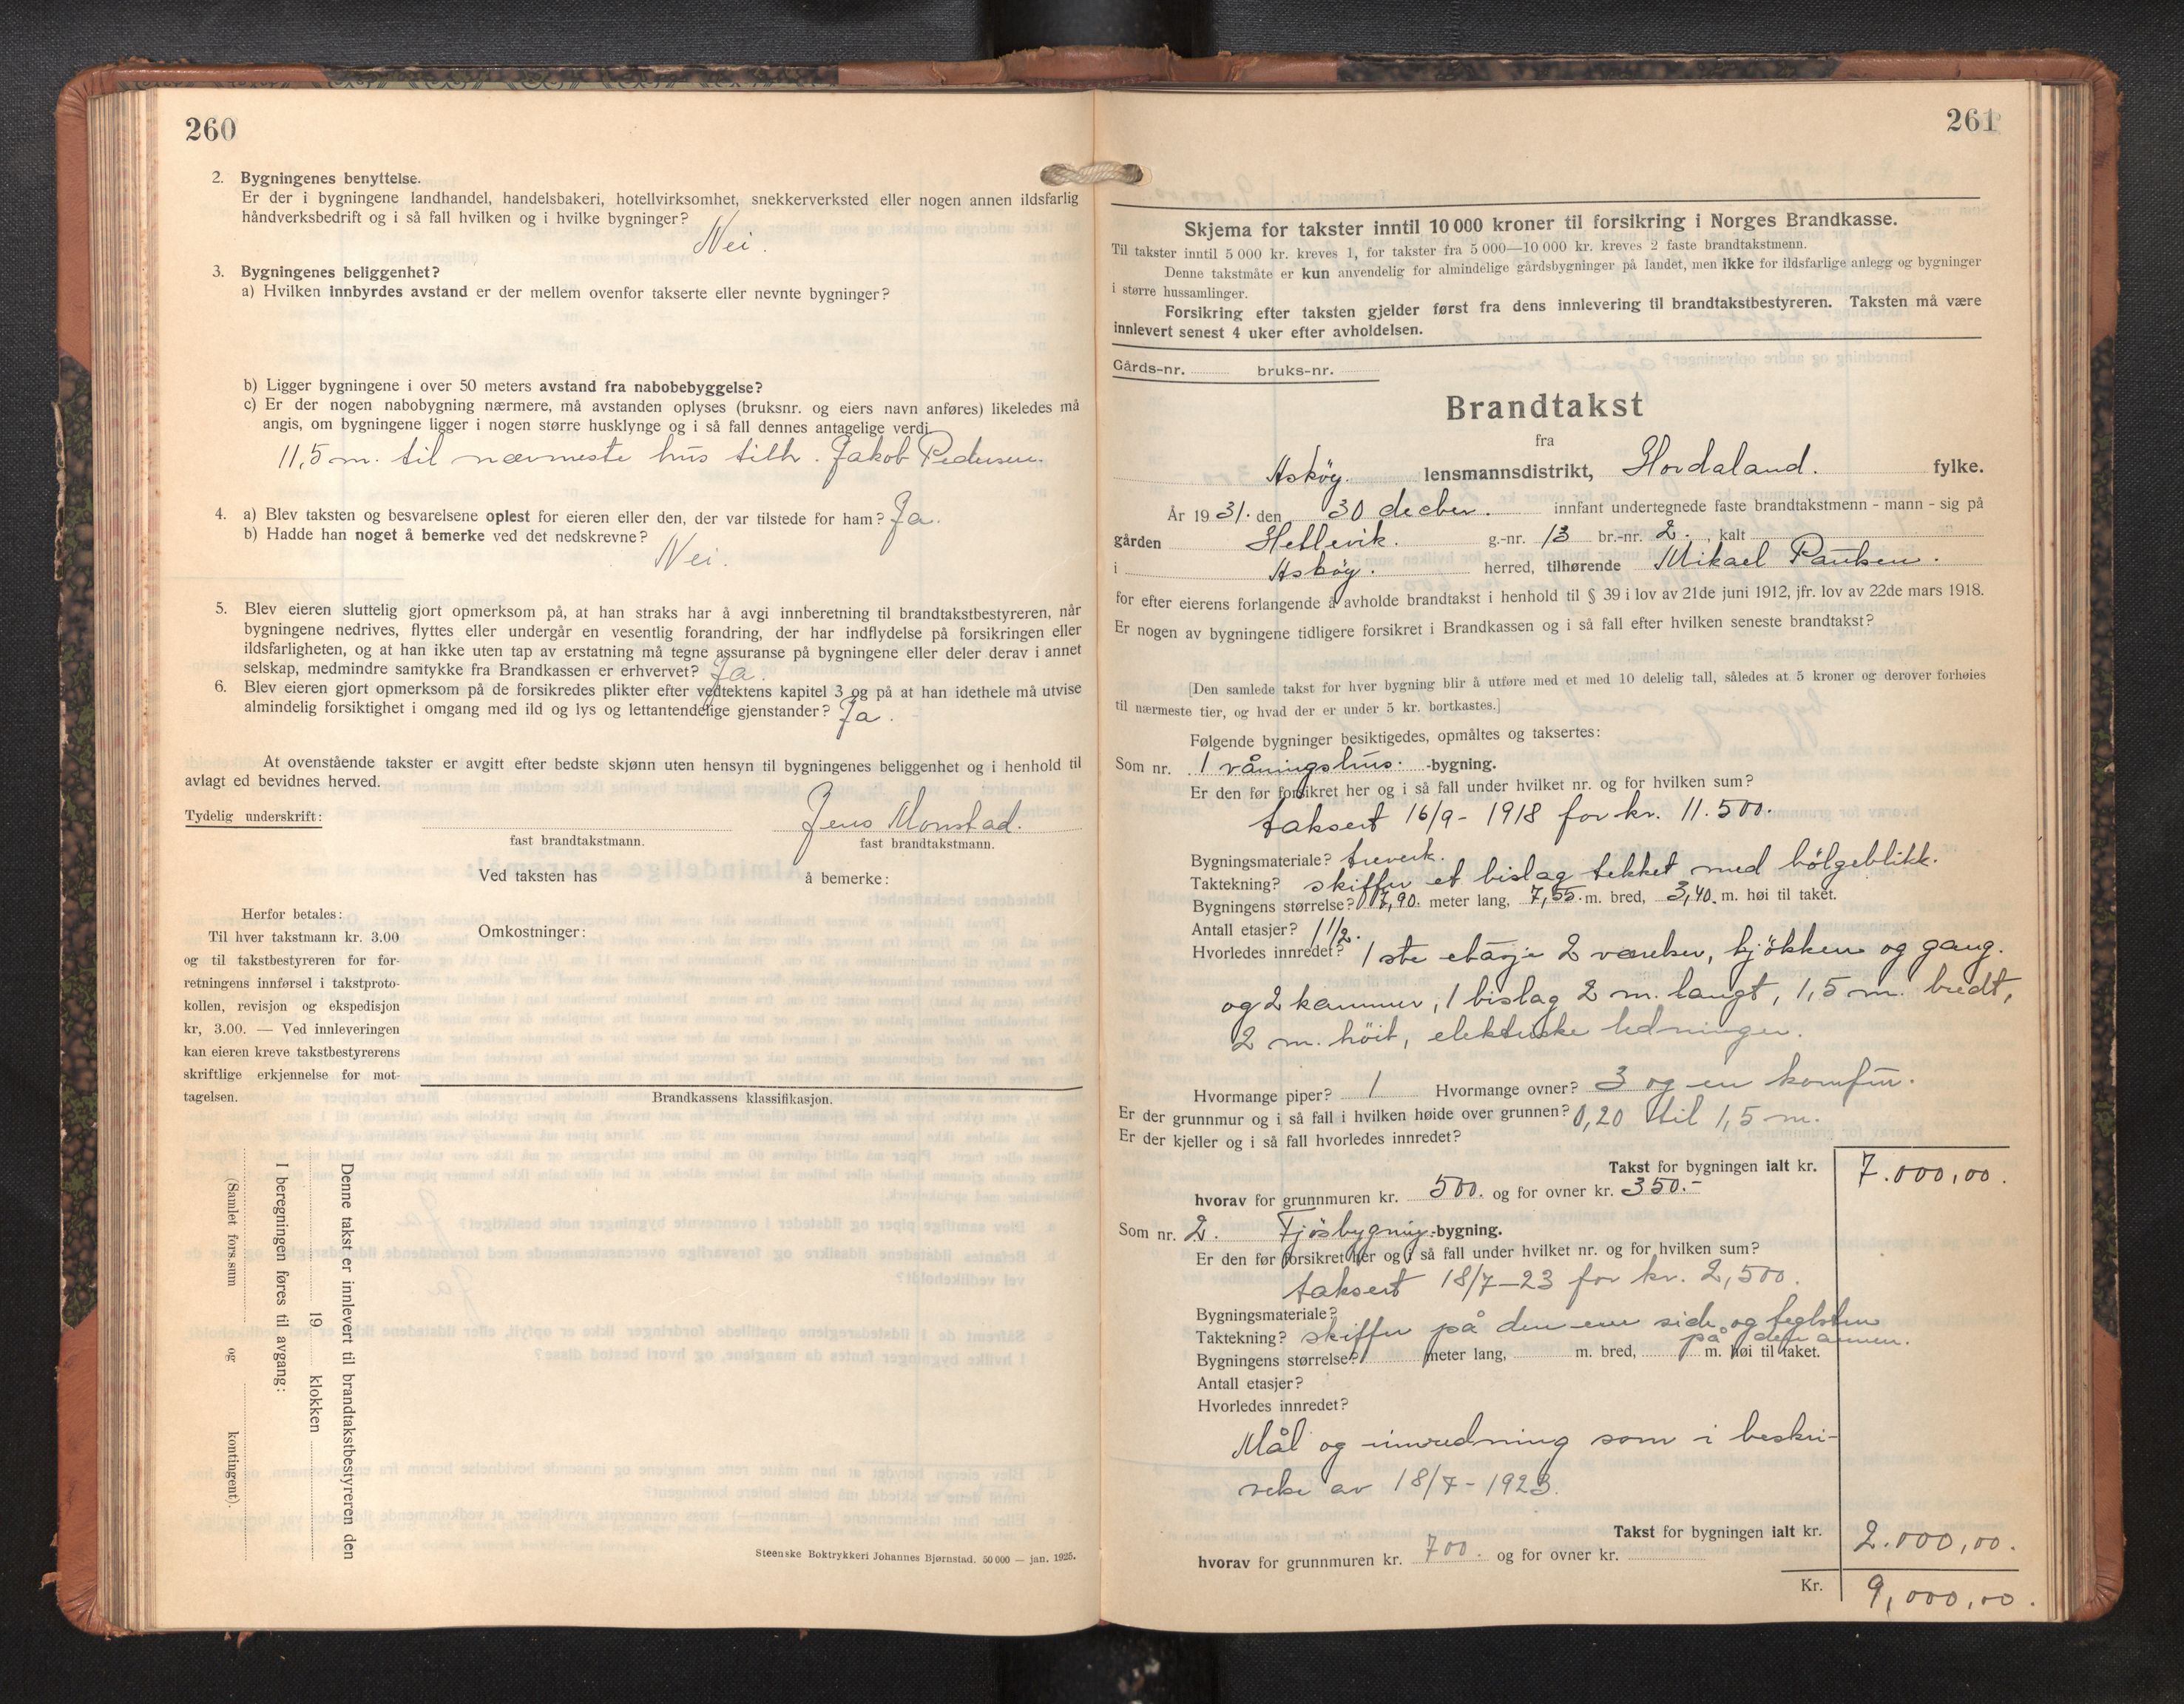 260
2. Bygningenes benyttelse.
Er der i bygningene landhandel, handelsbakeri, hotellvirksomhet, snekkerverksted eller nogen annen ildsfarlig
håndverksbedrift og i så fall hvilken og i hvilke bygninger?
Nei.
3. Bygningenes beliggenhet?
a) Hvilken innbyrdes avstand er der mellem ovenfor takserte eller nevnte bygninger?
b) Ligger bygningene i over 50 meters avstand fra nabobebyggelse?
c) Er der nogen nabobygning nærmere, må avstanden oplyses (bruksnr. og eiers navn anføres) likeledes må
angis, om bygningene ligger i nogen større husklynge og i så fall dennes antagelige verdi.
11,5 m. til nærmeste hus tilh. Jakob Pedersen.
4. a) Blev taksten og besvarelsene oplest for eieren eller den, der var tilstede for ham? Ja.
b) Hadde han noget å bemerke ved det nedskrevne?
Nei.
5. Blev eieren sluttelig gjort opmerksom på, at han straks har å avgi innberetning til brandtakstbestyreren, når
bygningene nedrives, flyttes eller undergår en vesentlig forandring, der har indflydelse på forsikringen eller
ildsfarligheten, og at han ikke uten tap av erstatning må tegne assuranse på bygningene eller deler derav i annet
selskap, medmindre samtykke fra Brandkassen er erhvervet? Ja.
6. Blev eieren gjort opmerksom på de forsikredes plikter efter vedtektens kapitel 3 og på at han idethele må utvise
almindelig forsiktighet i omgang med ild og lys og lettantendelige gjenstander? Ja.
At ovenstående takster er avgitt efter bedste skjønn uten hensyn til bygningenes beliggenhet og i henhold til
avlagt ed bevidnes herved.
Tydelig underskrift: Jens Monstad.
fast brandtakstmann. fast brandtakstmann.
Ved taksten has å bemerke:
Herfor betales:
Til hver takstmann kr. 3.00
og til takstbestyreren for for-
retningens innførsel i takstproto-
kollen, revisjon og ekspedisjon
kr, 3.00. — Ved innleveringen
kan eieren kreve takstbestyrerens
skriftlige erkjennelse for mot-
tagelsen.
Omkostninger:
Brandkassens klassifikasjon.
Denne takst er innlevert til brandtakstbestyreren den
19 klokken
I beregningen føres til avgang:
(Samlet fors.sum og kontingent).
Steenske Boktrykkeri Johannes Bjørnstad. 50 000 — jan. 1925.
261
Skjema for takster inntil 10 000 kroner til forsikring i Norges Brandkasse.
Til takster inntil 5 000 kr. kreves 1, for takster fra 5 000—10 000 kr. kreves 2 faste brandtakstmenn.
Denne takstmåte er kun anvendelig for almindelige gårdsbygninger på landet, men ikke for ildsfarlige anlegg og bygninger
i større hussamlinger.
Forsikring efter taksten gjelder først fra dens innlevering til brandtakstbestyreren. Taksten må være
innlevert senest 4 uker efter avholdelsen.
Gårds-nr. bruks-nr.
Brandtakst
fra
Askøy. lensmannsdistrikt, Hordaland. fylke.
År 1931. den 30 decber. innfant undertegnede faste brandtakstmenn - mann - sig på
gården Hetlevik. g.-nr. 13 br.-nr. 2. , kalt
i Askøy. herred, tilhørende Mikael Paulsen.
for efter eierens forlangende å avholde brandtakst i henhold til § 39 i lov av 21de juni 1912, jfr. lov av 22de mars 1918.
Er nogen av bygningene tidligere forsikret i Brandkassen og i så fall efter hvilken seneste brandtakst?
[Den samlede takst for hver bygning blir å utføre med et med 10 delelig tall, således at 5 kroner og derover forhøies
til nærmeste tier, og hvad der er under 5 kr. bortkastes.]
Følgende bygninger besiktigedes, opmåltes og taksertes:
Som nr. 1 våningshus. -bygning.
Er den før forsikret her og i så fall under hvilket nr. og for hvilken sum?
taksert 16/9 - 1918 for kr. 11.500.
Bygningsmateriale? treverk.
Taktekning? skiffer et bislag tekket med bölgeblikk.
Bygningens størrelse? 7,90. meter lang, 7,55. m. bred, 3,40. m. høi til taket.
Antall etasjer? 1 1/2.
Hvorledes innredet? 1ste etasje 2 værelser, kjökken og gang.
og 2 kammer, 1 bislag 2 m. langt, 1,5 m. bredt,
2 m. höit, elektriske ledninger.
Hvormange piper? 1 Hvormange ovner? 3 og en komfur.
Er der grunnmur og i så fall i hvilken høide over grunnen? 0,20 til 1,5 m.
Er der kjeller og i så fall hvorledes innredet?
Takst for bygningen ialt kr. 7.000,00.
hvorav for grunnmuren kr. 500. og for ovner kr. 350.-
Som nr. 2. Fjösbygning. -bygning.
Er den før forsikret her og i så fall under hvilket nr. og for hvilken sum?
taksert 18/7-23 for kr. 2,500.
Bygningsmateriale?
Taktekning? skiffer på den ene side og teglsten
på den annen.
Bygningens størrelse? meter lang, m. bred, m. høi til taket.
Antall etasjer?
Hvorledes innredet?
Mål og innredning som i beskri-
velse av 18/7 - 1923.
Takst for bygningen ialt kr. 2.000,00.
hvorav for grunnmuren kr. 700. og for ovner kr.
Kr. 9,000,00.